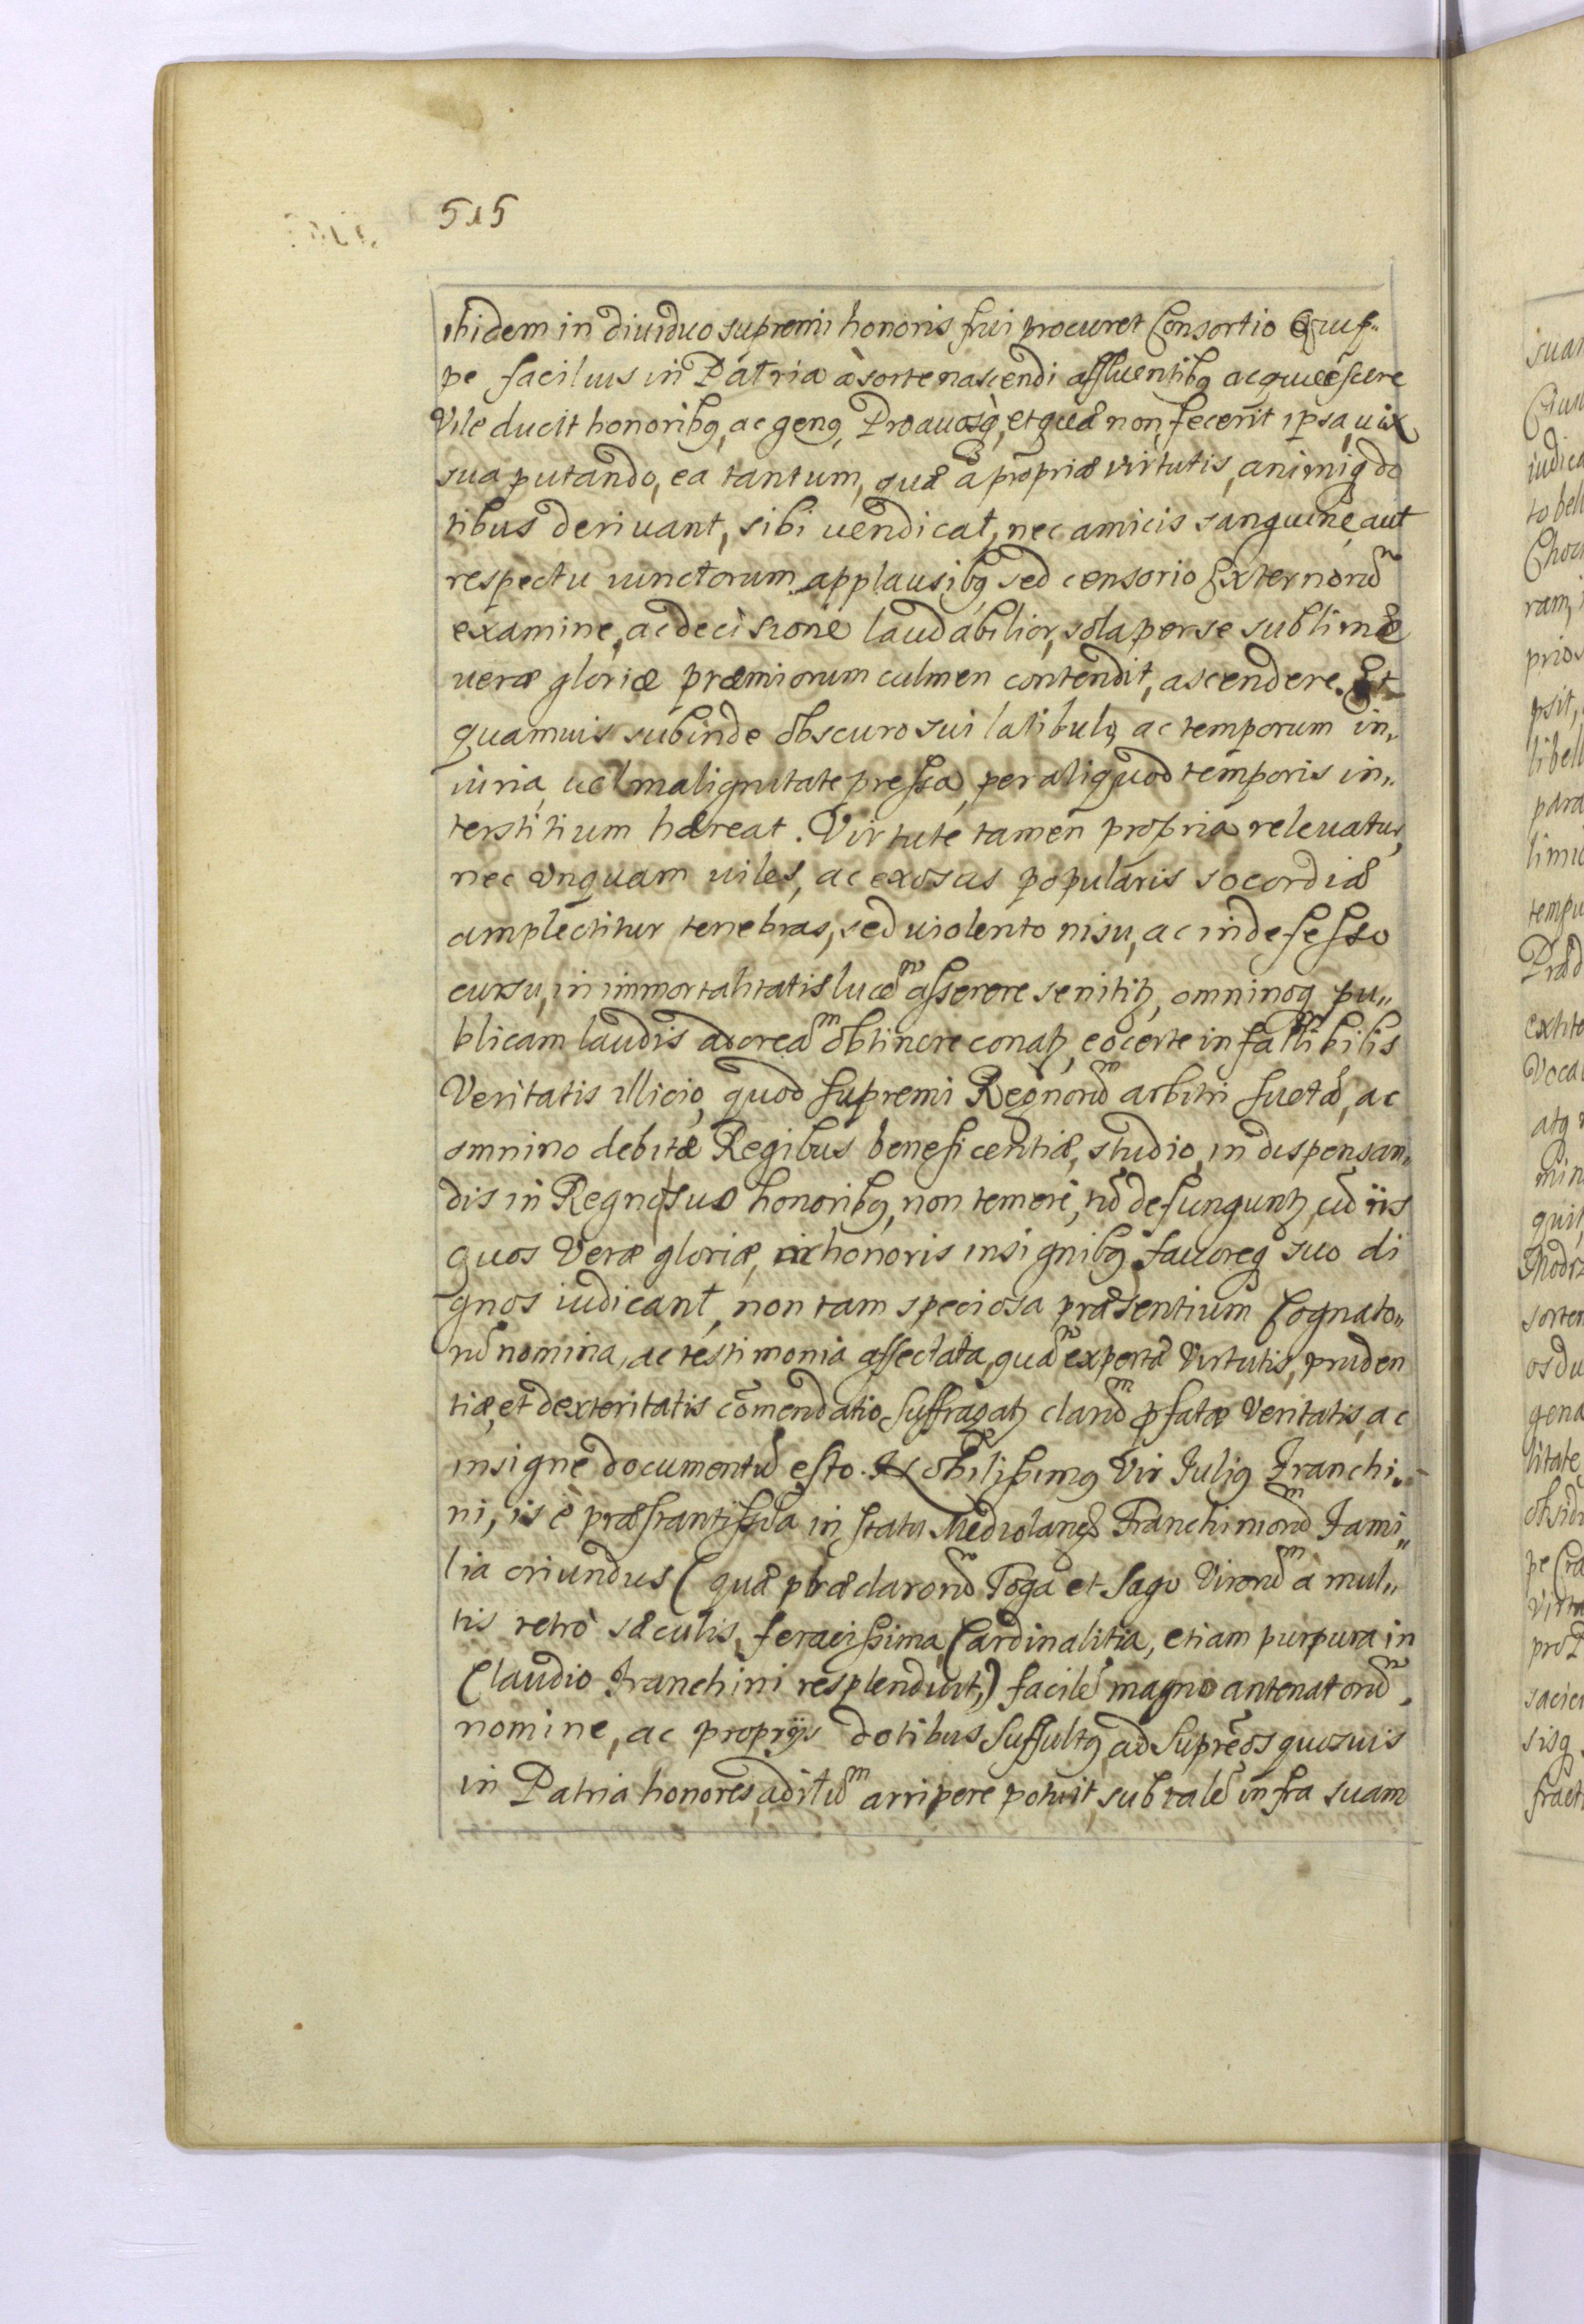 515
ibidem in diuiduo supremi honoris frui procuret Consortio Quip„
pe facilius in Patria à sorte nascendi affluentibꝯ acquiescere
Vile ducit honoribꝯ, ac genꝯ, Proauosq̀, et quæ non fecerit ipsa, uix
sua putando, ea tantum, quæ à propriæ virtutis, animiq do
tibus deriuant, sibi uendicat, nec amicis sanguine, aut
respectu iunctorum applausibꝯ sed censorio Externorũ
examine, ac decisione laudabilior, sola per se sublime
ueræ gloriæ præmiorum culmen contendit, ascendere. Et
quamuis subinde obscuro sui latibulo, ac temporum in„
iuria, uel malignitate pressa, per aliquod temporis in„
terstitium hæreat. Virtute tamen propria releuatur,
nec vnquam uiles, ac exosas popularis socordiæ
amplectitur tenebras, sed uiolento nisu, ac indefesso
cursu, in immortalitatis lucẽ asserere se nititꝶ, omninoq pu„
blicam laudis adoreã obtinere conatꝶ, eo certe infallibilis
Veritatis illicio, quod supremi Regnorũ arbitri suetæ, ac
omnino debitæ Regibus beneficentiæ, studio, in dispensan„
dis in Regno suo honoribꝯ, non temerè, tũ defunguntꝶ, cũ iis
quos veræ gloriæ, honoris insignibꝯ fauoreq suo di
gnos iudicant, non tam speciosa præsentium Cognato„
rũ nomina, ac testimonia affectata, quã expertæ Virtutis, pruden
tiæ, et dexteritatis cõmendatio suffragatꝶ clarũ pfatæ Veritatis, ac
insigne documentũ esto. Nobilissimꝯ Vir Juliꝯ Franchi„
ni, is è præstantissima in statu Mediolanẽ Franchinorũ Fami„
lia oriundus (quæ præclarorũ Toga et Sago Virorũ à mul„
tis retrò sæculis, feracissima, Cardinalitia, etiam purpura in
Claudio Franchini resplenduit,) facilè magno antenatorũ,
nomine, ac proprijs dotibus suffultꝯ, ad suprẽos quosuis
in Patria honores, aditũ arripere potuit, sub talẽ infra suam